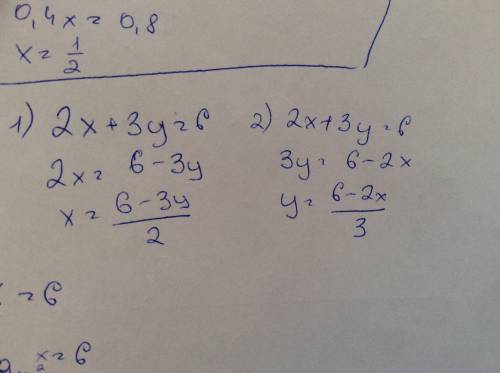 0,4x = 0,8
x = 1/2
1) 2x+3y=6
2x = 6-3y
x = (6-3y)/2
2) 2x+3y=6
3y = 6-2x
y = (6-2x)/3
=6
x/2=6